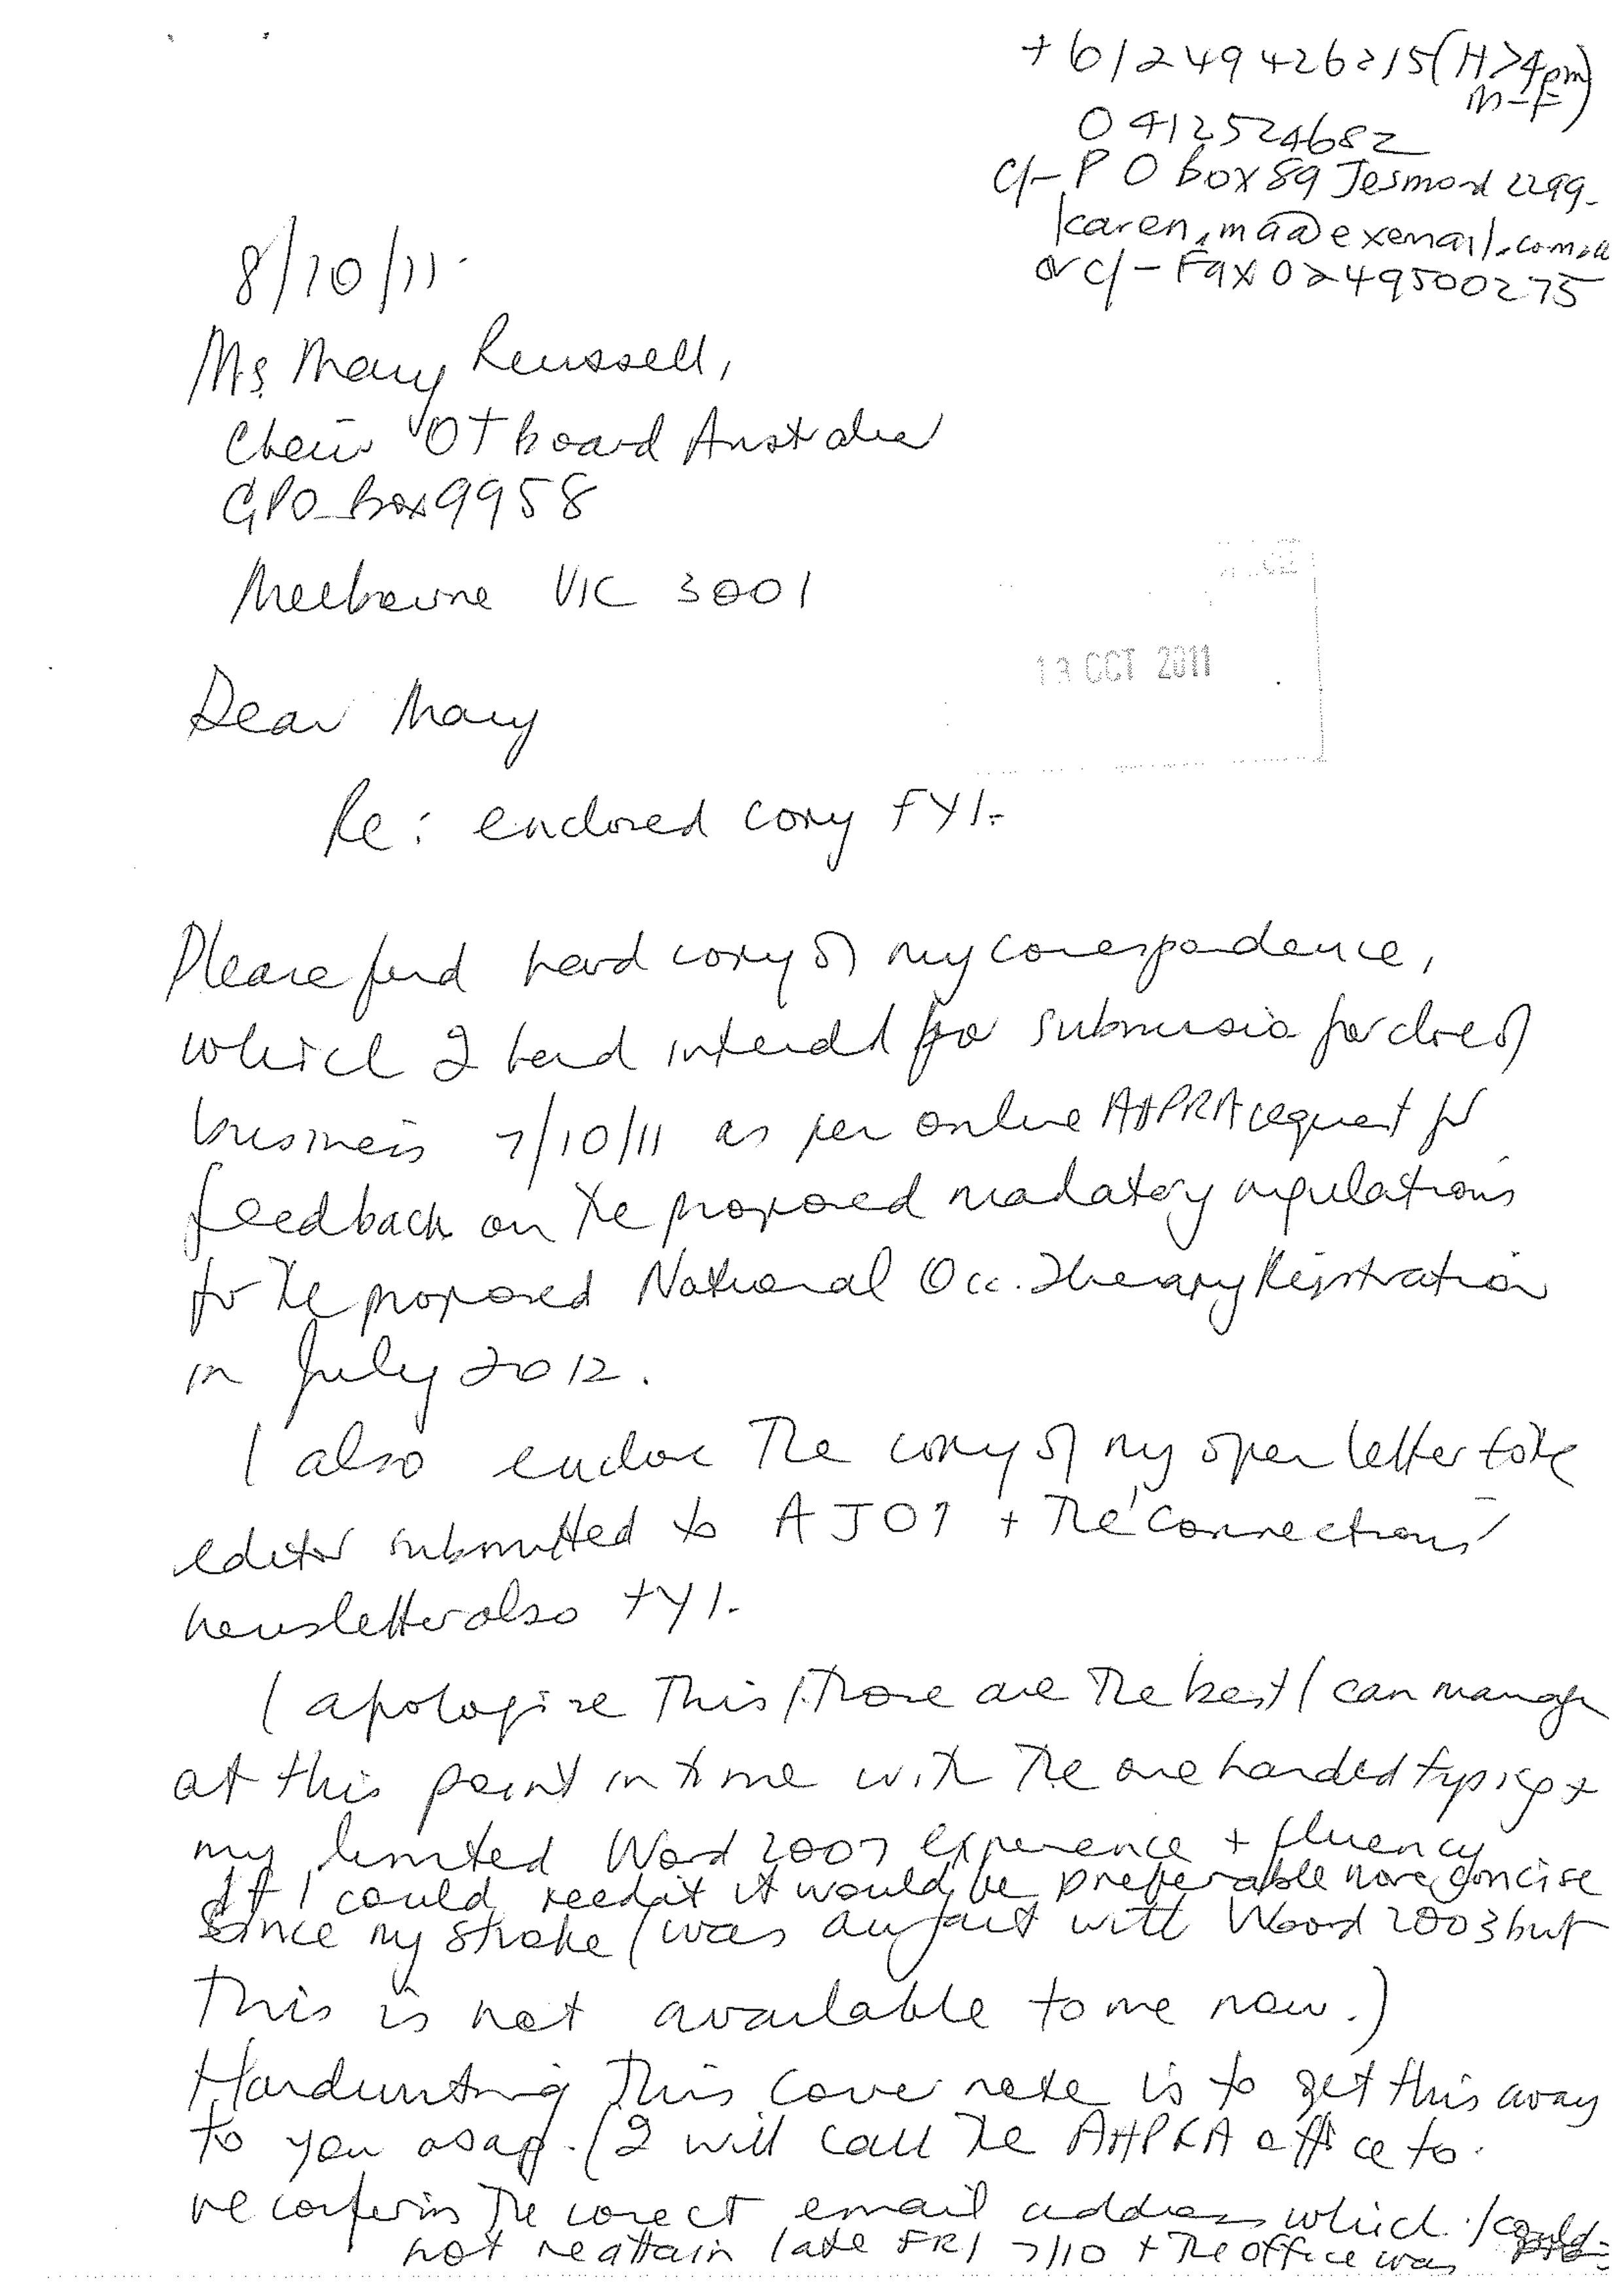 +61249426215 (H>4pm
M-F)
0412524682
C/- P O box 89 Jesmond 2299
karen.ma@exemail.com.au
or c/- Fax 0249500275
8/10/11
Ms Mary Reussell,
Chair OT board Australia
GPO Box 9958
Melbourne VIC 3001
13 OCT 2011
Dear Mary
Re: enclosed copy FYI.
Please find hard copy of my correspondence,
which I had intended for submission for close of
business 7/10/11 as per online AHPRA request for
feedback on the proposed mandatory regulations
for the proposed National Occ. Therapy Registration
in July 2012.
I also enclose the copy of my open letter to the
editor submitted to AJOT + the 'Connections'
newsletter also FYI.
(apologise this/those are the best I can manage
at this point in time with the one handed typing +
my limited Word 2007 experience + fluency
If I could reedit it would be preferable more concise
Since my stroke (was aufait with Word 2003 but
this is not available to me now.)
Handwriting this cover note is to get this away
to you asap. (I will call the AHPRA office to
reconfirm the correct email address which I could
not reattain late FRI 7/10 + the office was